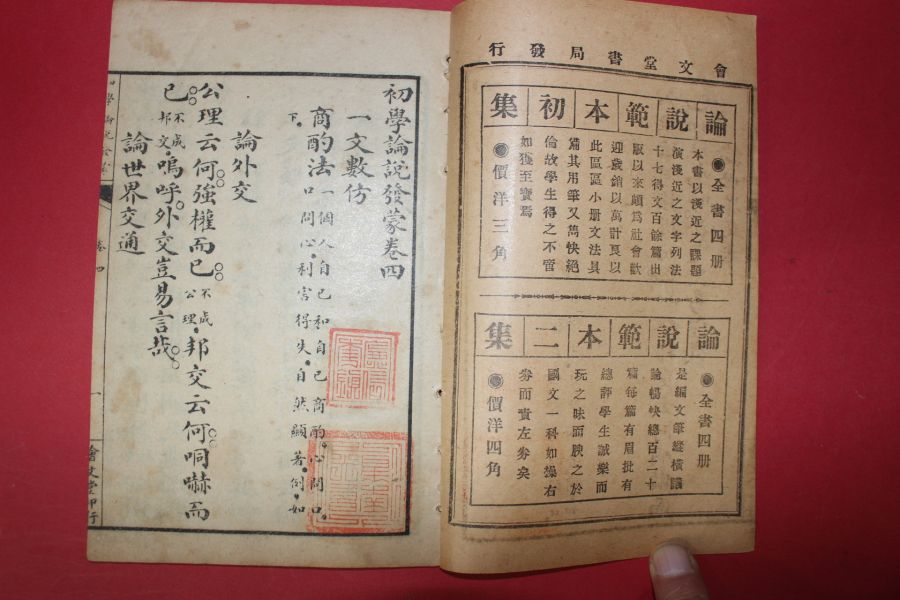 會文堂書局發行
論說範本初集
◉全書四册
本書以淺近之課題
演淺近之文字列法
十七得文百餘篇出
版以來頗爲社會歡
迎歲銷以萬計良以
此區區小册文法具
備其用筆又雋快絕
倫故學生得之不啻
如獲至寶焉
◉價洋三角
論說範本二集
◉全書四册
是編文筆縱橫議
論暢快總百二十
篇每篇有眉批有
總評學生誠樂而
玩之味而腴之於
國文一科如操右
券而責左券矣
◉價洋四角
初學論說發蒙卷四
一文數仿
商酌法一個人自己和自己商酌。心問口。
口問心。利害得失。自然顯著。例如
下。
論外交
公理云何。強權而已。不成公理。邦交云何。哃嚇而
已。不成邦交。嗚呼。外交豈易言哉。
論世界交通
卷四
一
會文堂印行